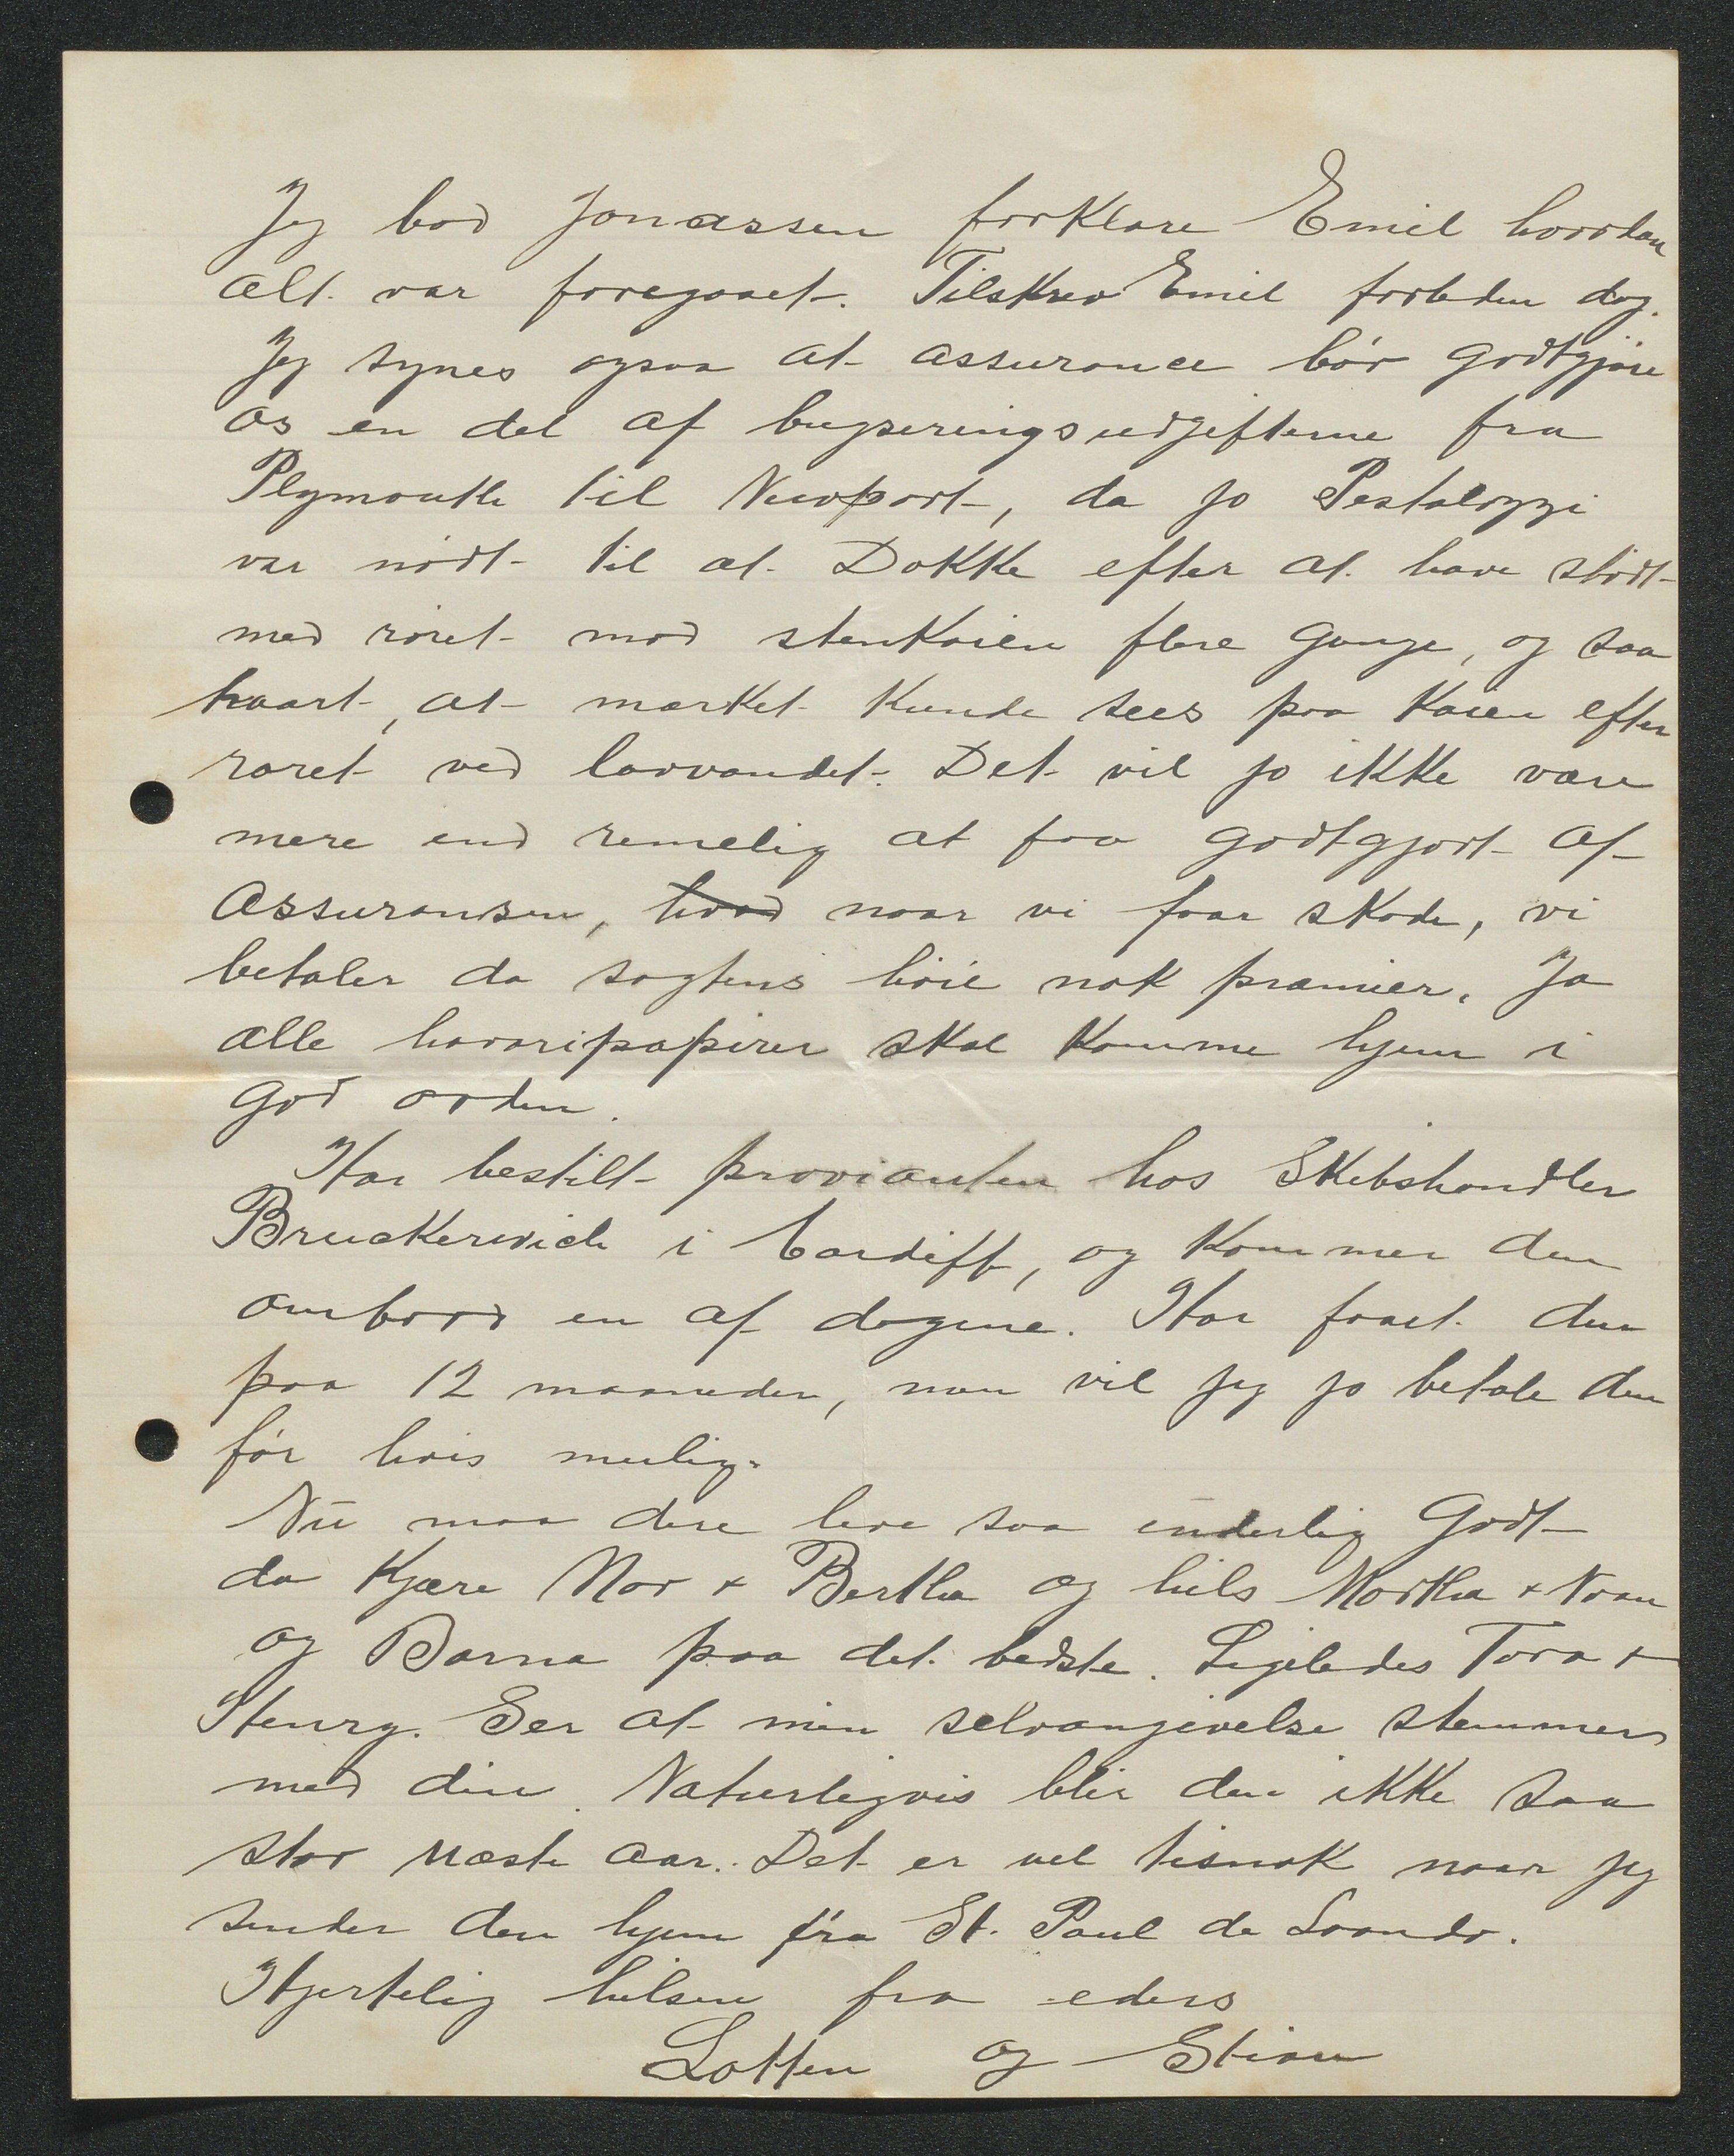 Jeg bad Jonassen forklare Emil hvordan
alt var foregaaet. Tilskrev Emil forleden dag.
Jeg synes ogsaa at assurance bör godtgjöre
os en del af bugseringsudgifterne fra
Plymouth til Newport, da jo Pestalozzi
var nödt til at Dokke efter at have stödt
med röret mod stenkaien flere gange, og saa
haart, at merket kunde sees paa kaien efter
roret ved lavvandet. Det vil jo ikke være
mere end remelig at faa godtgjort af
Assuransen, hvad naar vi faar skade, vi
betaler da sagtens höie nok præmier. Ja
alle havaripapirer skal komme hjem i
god orden.
Har bestilt provianten hos Skibshandler
Bruckerwich i Cardiff, og kommer den
ombord en af dagene. Har faaet den
paa 12 maaneder, men vil jeg jo betale den
för hvis mulig.
Nū maa dere leve saa inderlig Godt
da Kjære Mor & Bertha og hils Martha &
og Barna paa det bedste. Ligeledes Tora &
Henry. Ser at min selvangivelse stemmer
med din. Naturligvis blir den ikke saa
stor næste aar. Det er vel tisnok naar jeg
sender den hjem fra St. Paul de Loando.
Hjertelig hilsen fra eders
Lotten og Stian